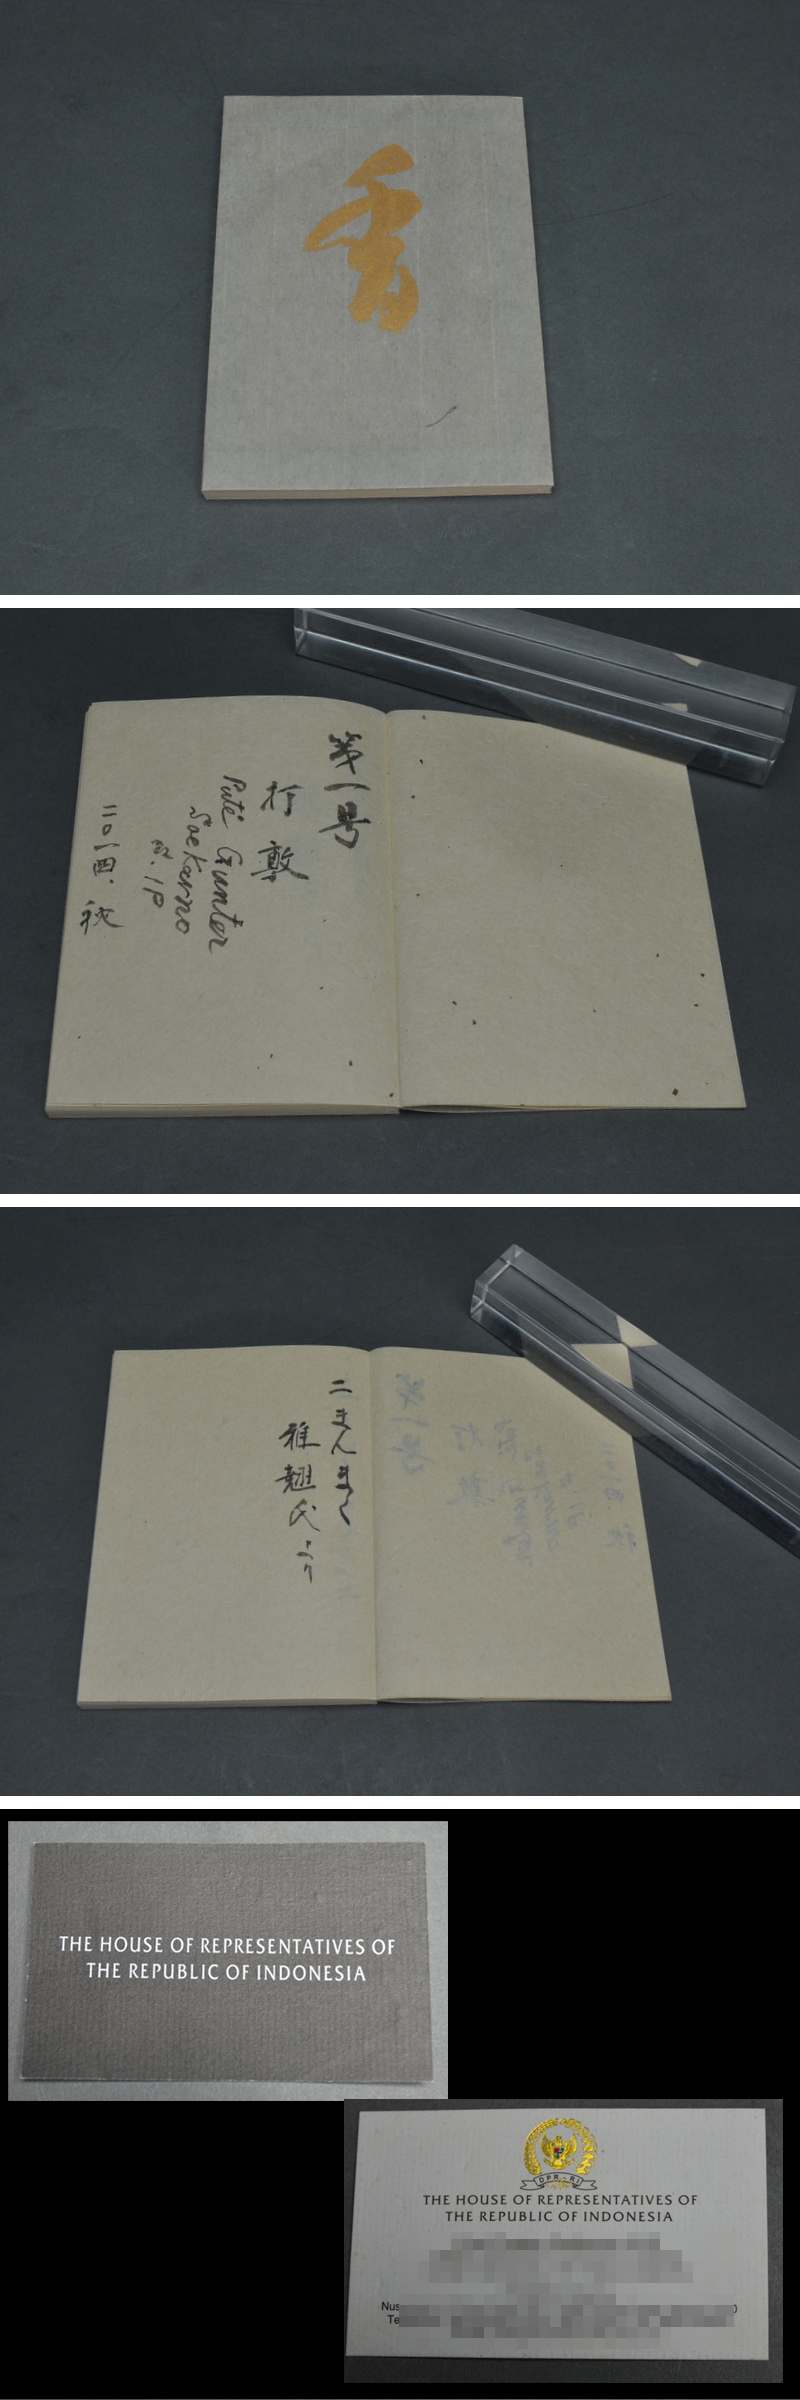 香
第一号
打敦
Puté Gunter
Soekarno
S.IP
二〇一酉.秋
二まんまく
雅翹氏より
THE HOUSE OF REPRESENTATIVES OF
THE REPUBLIC OF INDONESIA
DPR-RI
THE HOUSE OF REPRESENTATIVES OF
THE REPUBLIC OF INDONESIA